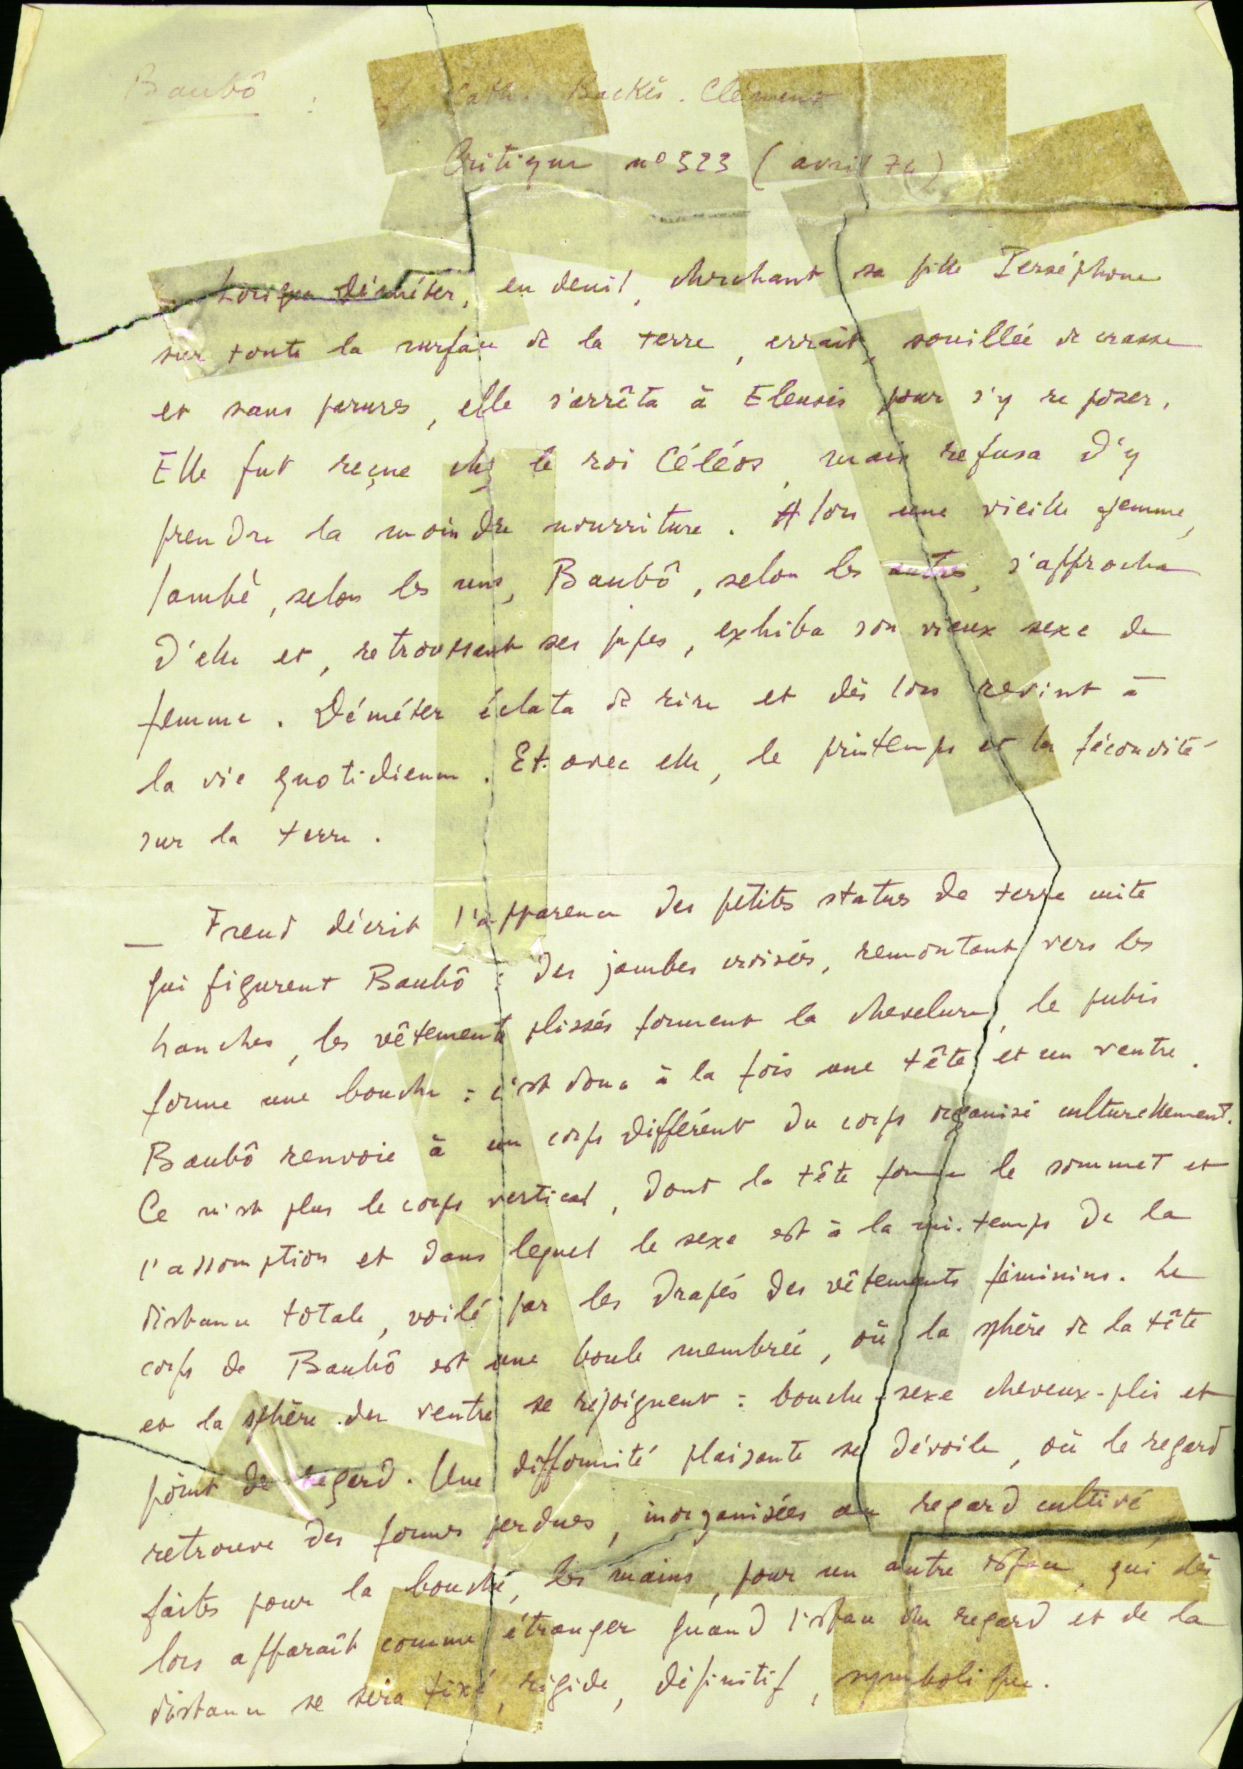 Baubô : Cath. Backès-Clément
Critique n° 323 (avril 74)
Lorsque Déméter, en deuil, cherchant sa fille Perséphone
sur toute la surface de la terre, errait, souillée de crasse
et sans parures, elle s'arrêta à Eleusis pour s'y reposer.
Elle fut reçue chez le roi Céléos, mais refusa d'y
prendre la moindre nourriture. Alors une vieille femme,
Iambè, selon les uns, Baubô, selon les autres, s'approcha
d'elle et, retroussant ses jupes, exhiba son vieux sexe de
femme. Déméter éclata de rire et dès lors revint à
la vie quotidienne. Et avec elle, le printemps et la fécondité
sur la terre.
— Freud décrit l'apparence des petites statues de terre cuite
qui figurent Baubô : des jambes croisées, remontant vers les
hanches, les vêtements plissés forment la chevelure, le pubis
forme une bouche : c'est donc à la fois une tête et un ventre.
Baubô renvoie à un corps différent du corps organisé culturellement.
Ce n'est plus le corps vertical, dont la tête forme le sommet et
l'assomption et dans lequel le sexe est à la mi-temps de la
distance totale, voilé par les drapés des vêtements féminins. Le
corps de Baubô est une boule membrée, où la sphère de la tête
et la sphère du ventre se rejoignent : bouche-sexe cheveux-plis et
point de regard. Une difformité plaisante se dévoile, où le regard
retrouve des formes perdues, inorganisées au regard cultivé,
faites pour la bouche, les mains, pour un autre espace, qui dès
lors apparaît comme étranger quand l'espace du regard et de la
distance se sera fixé, rigide, définitif, symbolique.